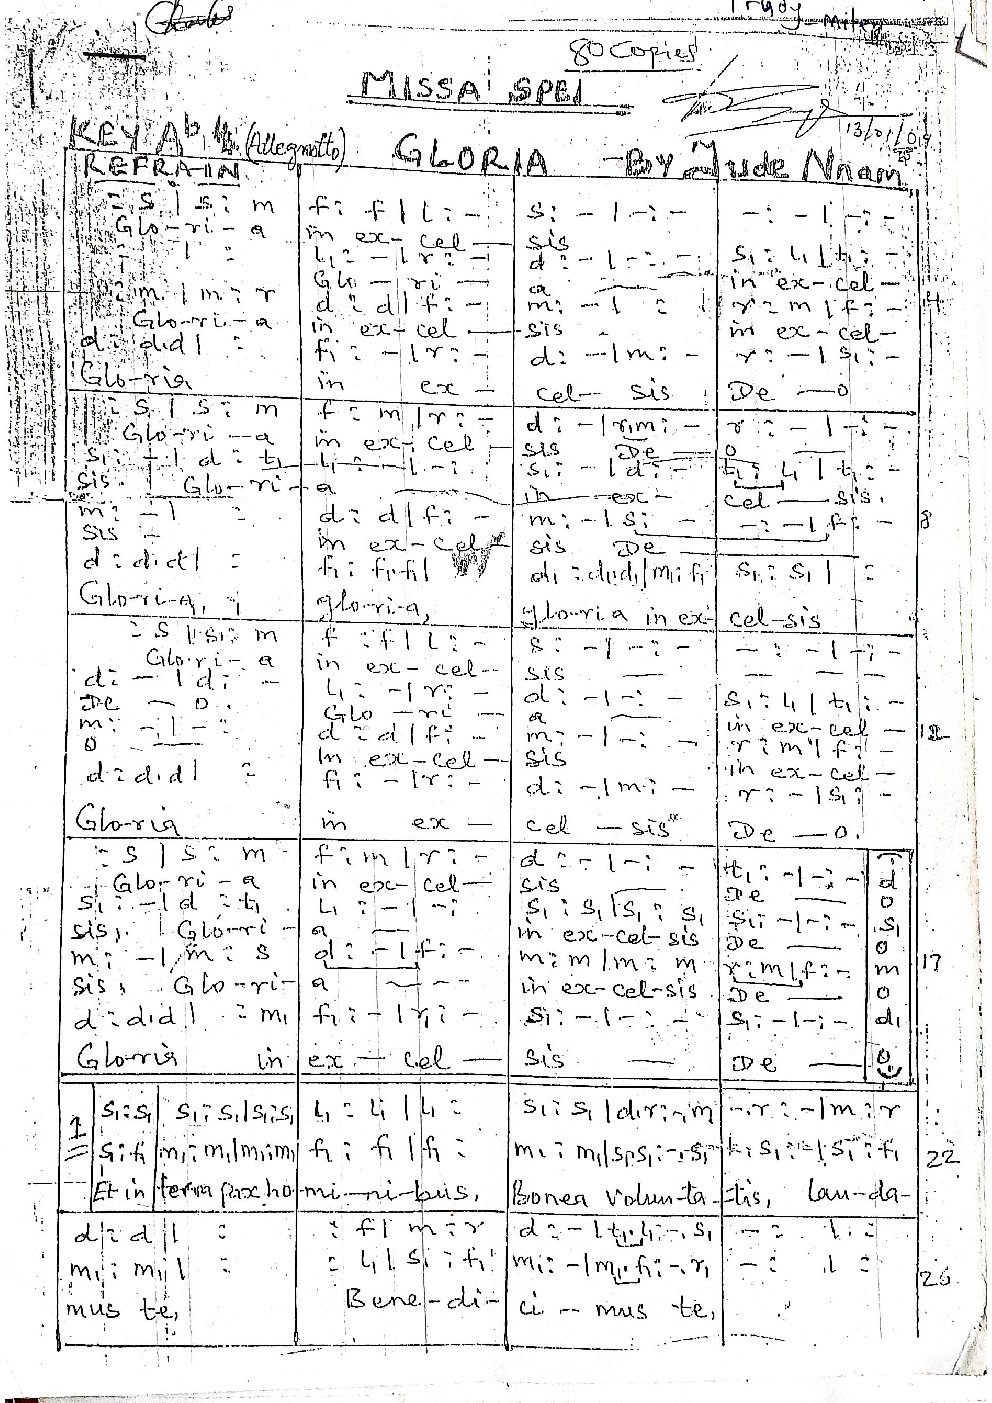 80 Copies
MISSA SPEI
13/01/09
KEY Ab 4 (Allegretto) GLORIA - BY Jude Nnam
REFRAIN
: s | s : m f : f | l : - s : - | - : - - : - | - : -
Glo-ri-a in ex-cel — sis
| : l₁ : - | r : - d : - | - : - s₁ : l₁ | t₁ : -
Glo — ri — a in ex-cel-
: m | m : r d : d | f : - m : - | : r : m | f : -
Glo-ri-a in ex-cel — sis in ex-cel-
d : d.d | : f₁ : - | r : - d : - | m : - r : - | s₁ : - 4
Glo-ria in ex - cel - sis De — o
: s | s : m f : m | r : - d : - | r.m : - r : - | - : -
Glo-ri-a in ex-cel- sis De — o
s₁ : - | d : t₁ l₁ : - | - : s₁ : - | d : - t₁ : l₁ | t₁ : -
sis. Glo-ri-a in — ex- cel — sis.
m : - | : d : d | f : - m : - | s : - - : - | f : - 8
sis - in ex-cel- sis De —
d : d.d | : f₁ : f₁.f₁ | d₁ : d₁.d₁ | m₁ : f₁ s₁ : s₁ | :
Glo-ri-a, glo-ri-a, glo-ria in ex- cel-sis
: s | s : m f : f | l : - s : - | - : - - : - | - : -
Glo-ri-a in ex-cel- sis —
d : - | d : - l₁ : - | r : - d : - | - : - s₁ : l₁ | t₁ : -
De — o. Glo — ri — a in ex-cel — 12
m : - | - : d : d | f : - m : - | - : - r : m | f : -
o — In ex-cel — sis in ex-cel-
d : d.d | : f₁ : - | r : - d : - | m : - r : - | s₁ : -
Glo-ria in ex - cel - sis De — o.
: s | s : m f : m | r : - d : - | - : - t₁ : - | - : - d
Glo-ri-a in ex-cel — sis De — o
s₁ : - | d : t₁ l₁ : - | - : s₁ : s₁ | s₁ : s₁ s₁ : - | - : - s₁
sis, Glo-ri-a — in ex-cel-sis De — o
m : - | m : s d : - | f : - m : m | m : m r : m | f : - m 17
sis, Glo-ri-a - - - in ex-cel-sis De — o
d : d.d | : m₁ f₁ : - | r₁ : - s₁ : - | - : - s₁ : - | - : - d₁
Gloria in ex - cel — sis — De — o
1 s₁ : s₁ s₁ : s₁ | s₁ : s₁ l₁ : l₁ | l₁ : s₁ : s₁ | d.r : -.m -.r : - | m : r
s₁ : f₁ m₁ : m₁ | m₁ : m₁ f₁ : f₁ | f₁ : m₁ : m₁ | s₁.s₁ : -.s₁ 22
Et in terra pax ho-mi-ni-bus, Bonea volun-ta-tis, lau-da-
d : d | : : f | m : r d : - | t₁.l₁ : -.s₁ - : | :
m₁ : m₁ | : : l₁ | s₁ : f₁ m₁ : - | m₁.f₁ : -.r₁ - : | : 26
mus te, Bene-di- ci - mus te,